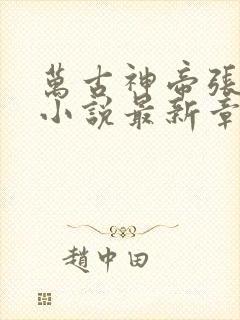 萬古神帝張
小說最新章
趙中田